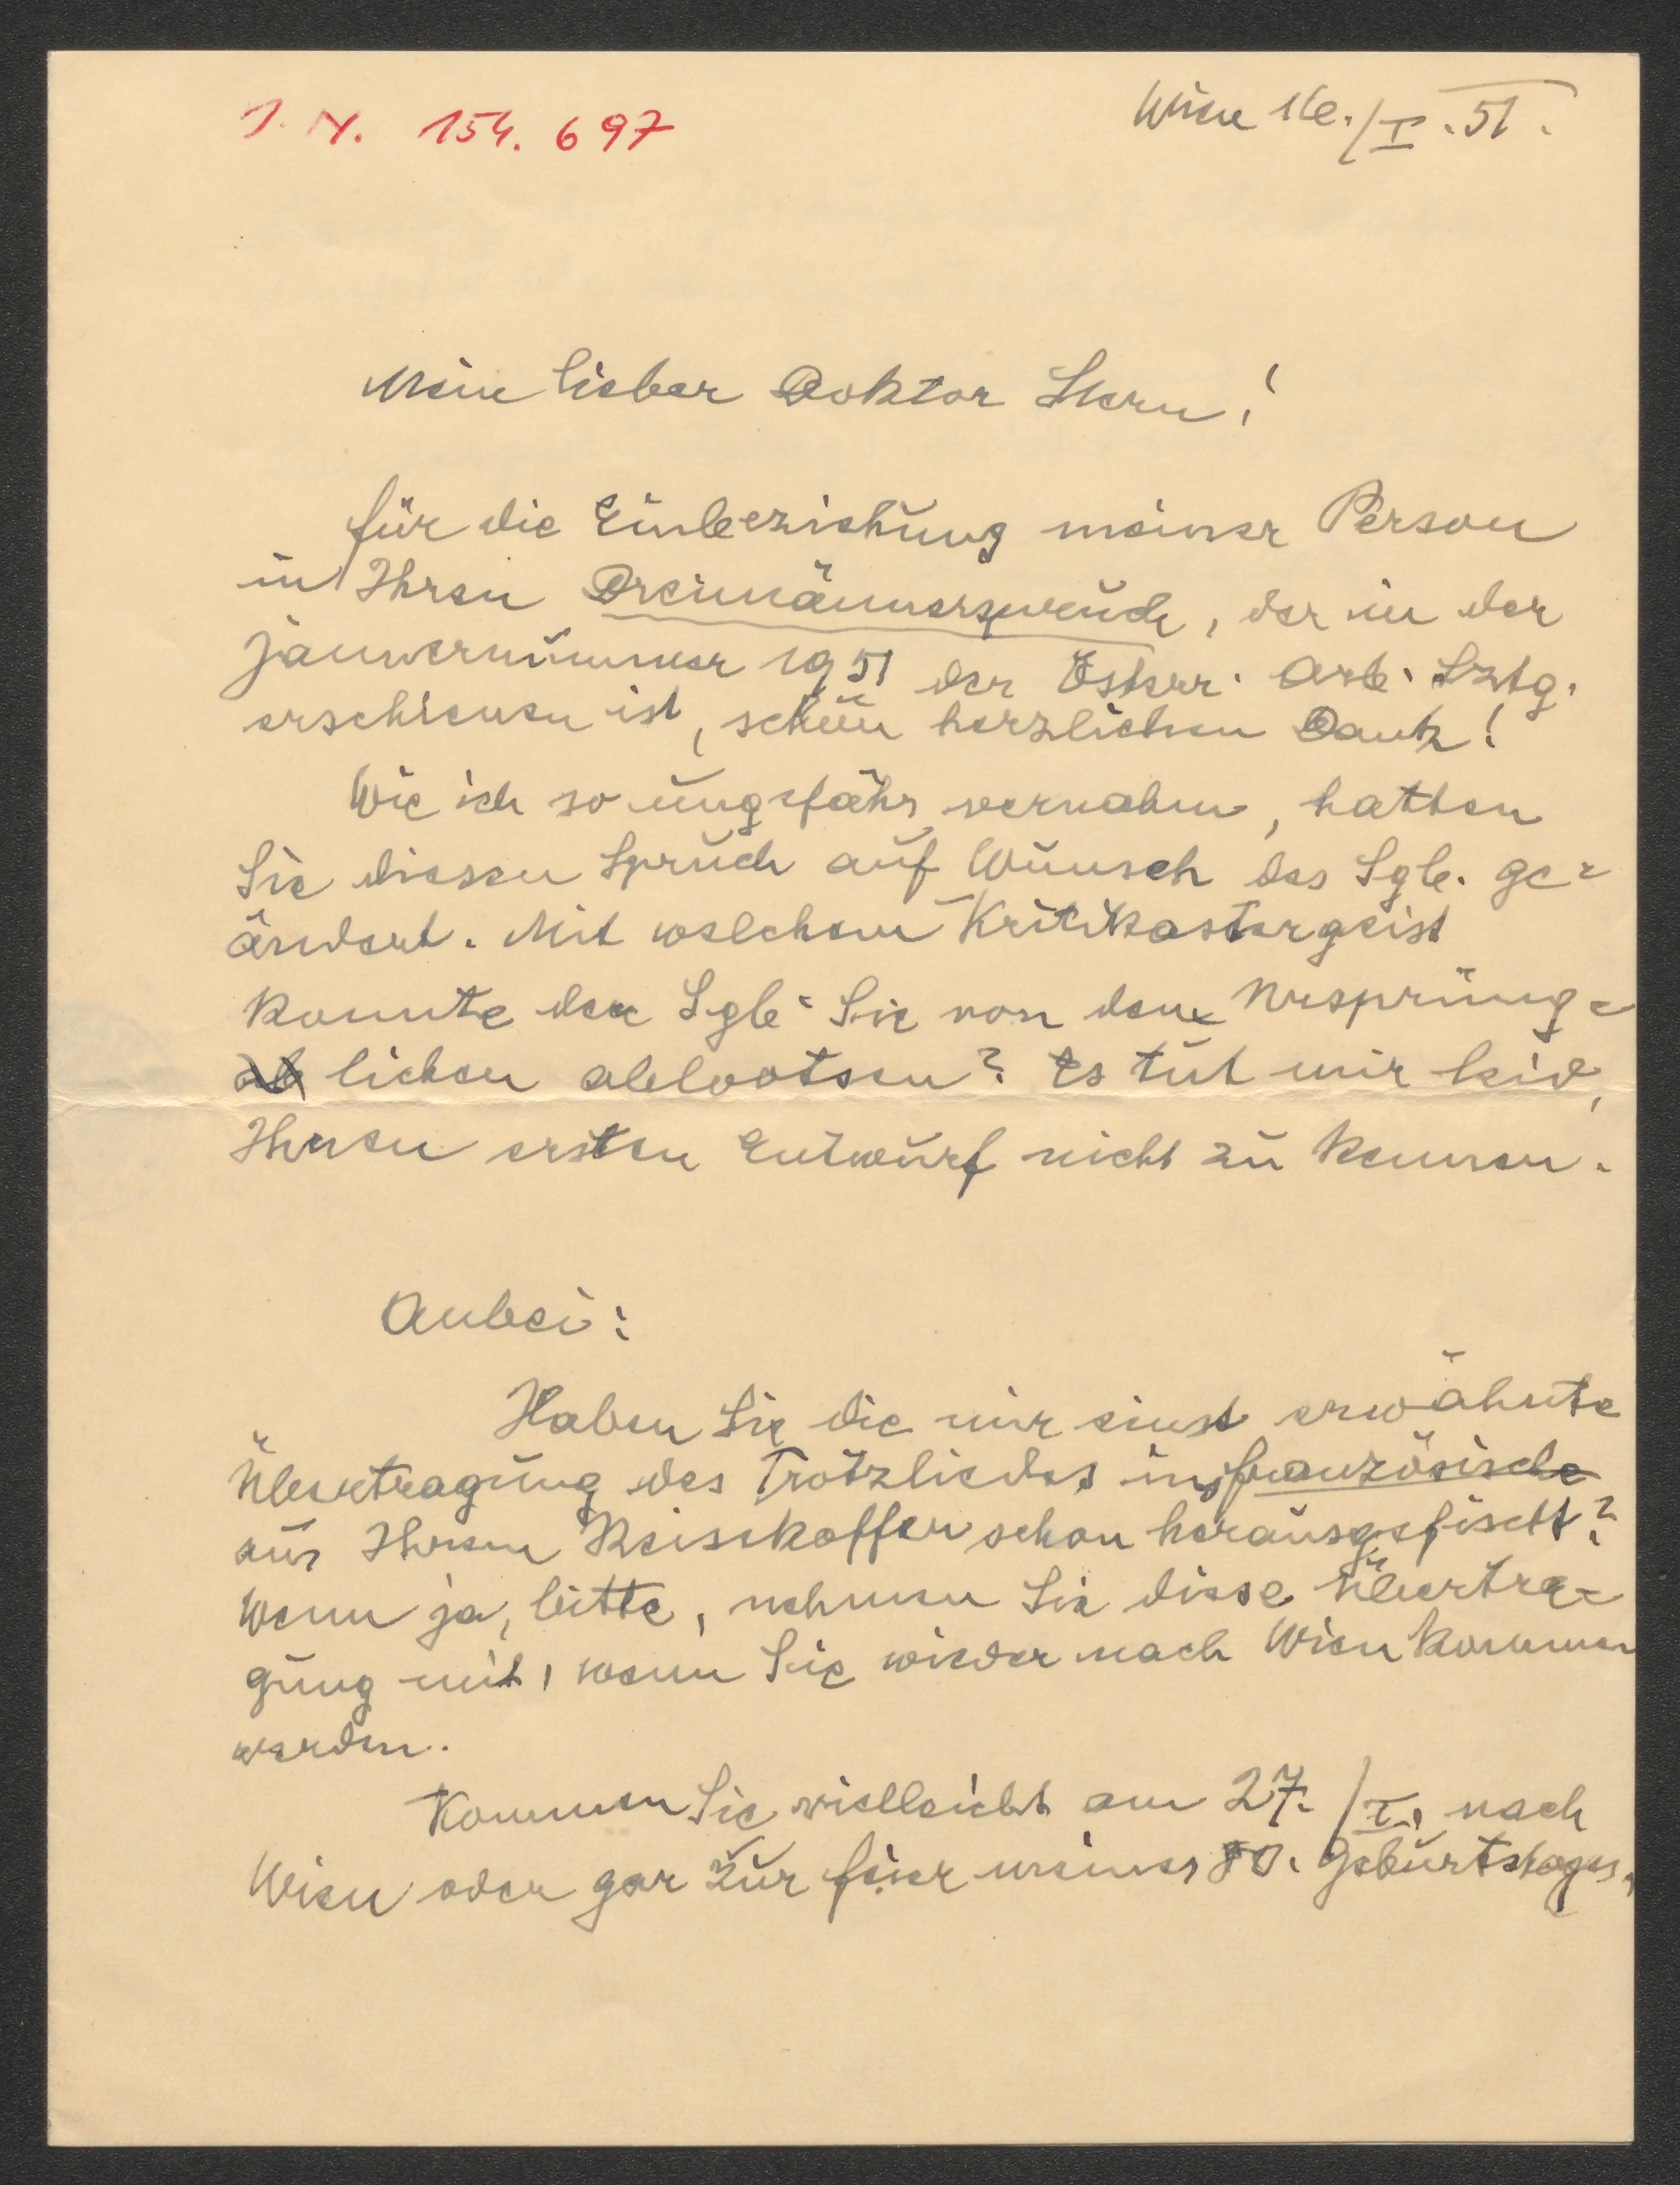 J. N. 154.697
Wien 16./I.51.
Mein lieber Doktor Stern!
für die Einbeziehung meiner Person
in Ihren Dreimännerspruch, der in der
Jännernummer 1951 der Österr. Arb. Sztg.
erschienen ist, schön herzlichen Dank!
Wie ich so ungefähr vernahm, hatten
Sie diesen Spruch auf Wunsch des Sgb. ge-
ändert. Mit welchem Kritikastergeist
konnte der Sgb. Sie von dem Ursprüng-
lichen ablootsen? Es tut mir leid,
Ihren ersten Entwurf nicht zu kennen.
Anbei:
Haben Sie die mir einst erwähnte
Übertragung des Trotzliedes ins französische
aus Ihrem Reisekoffer schon herausgefischt?
Wenn ja, bitte, nehmen Sie diese Übertra-
gung mit, wenn Sie wieder nach Wien kommen
werden.
Kommen Sie vielleicht am 27./I. nach
Wien oder gar zur Feier meines 80. Geburtstages,